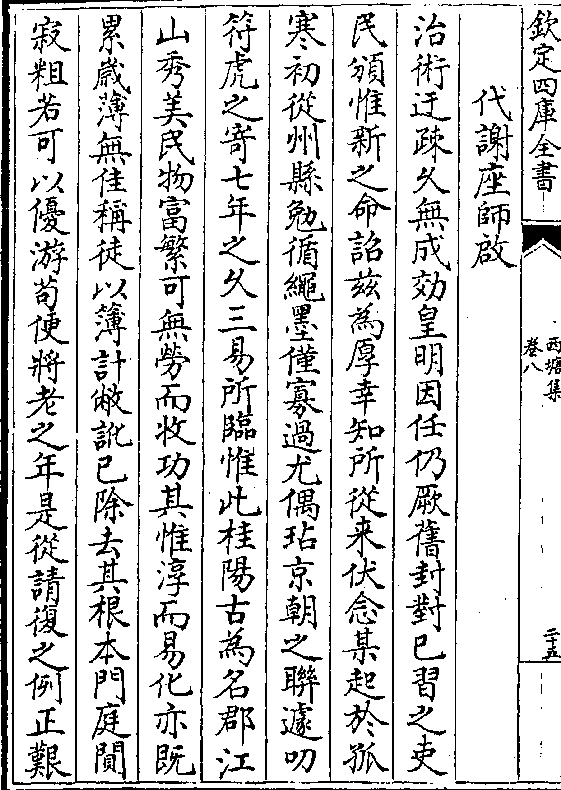 欽定四庫全書
西塘集
卷八
二十五
代謝座師啟
治術迂疎久無成効皇明因任仍厥舊封對已習之吏
民頒惟新之命詔兹為厚幸知所從来伏念某起於孤
寒初從州縣勉循繩墨僅寡過尤偶玷京朝之聨遽叨
符虎之寄七年之久三易所臨惟此桂陽古為名郡江
山秀美民物富繁可無勞而收功其惟淳而易化亦既
累歲薄無佳稱徒以簿計敝訛已除去其根本門庭閴
寂粗若可以優游苟便將老之年是從請復之例正艱